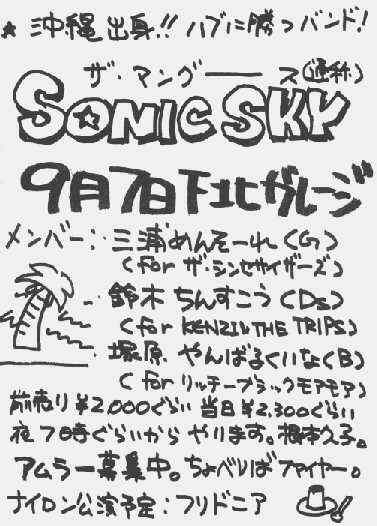 ★ 沖縄出身!! ハブに勝つバンド!
ザ・マングース(通称)
SONIC SKY
9月7日下北ガレージ
メンバー:三浦めんそーれ(G)
(for ザ・シンセサイザーズ)
鈴木ちんすこう(Ds)
(for KENZI&THE TRIPS)
塚原 やんばるくいな(B)
(for リッチーブラックモアモア)
前売り¥2,000ぐらい 当日¥2,300ぐらい
夜7時ぐらいから やります。根本久子。
アムラー募集中。ちょべりばファイヤー。
ナイロン公演予定:フリドニア